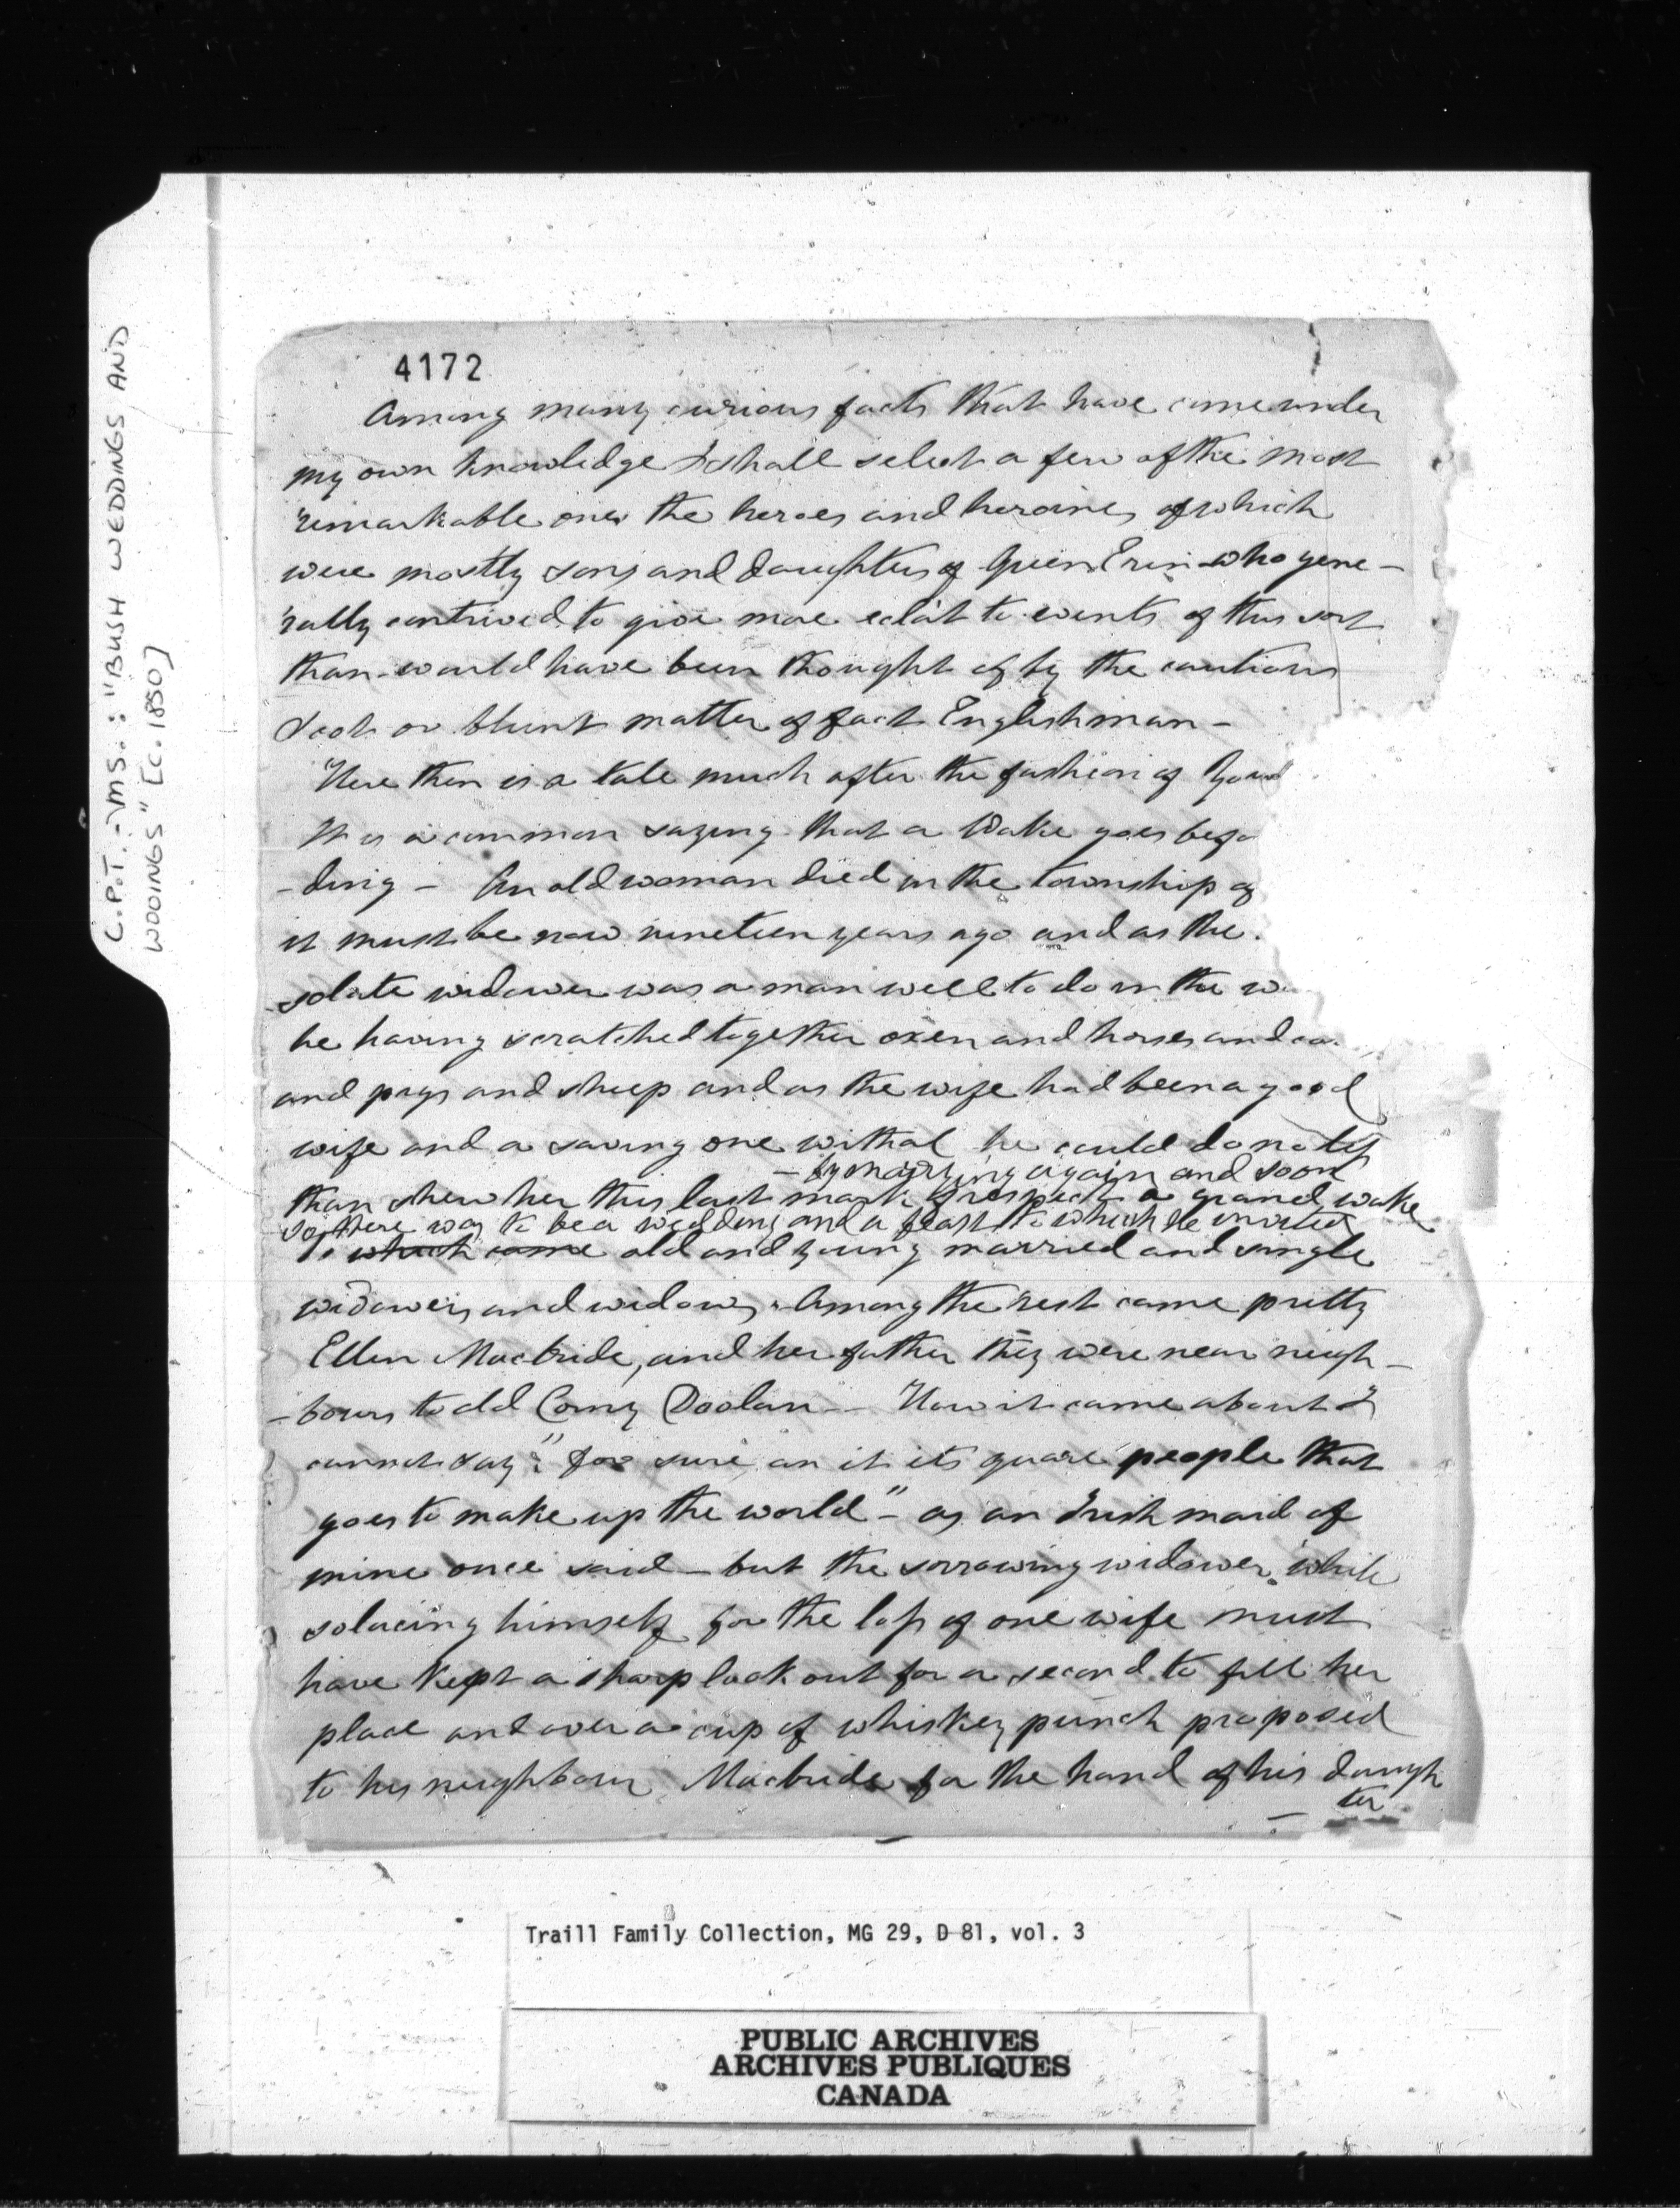 C.P.T. - MS.: "BUSH WEDDINGS AND
WOOINGS" [C. 1850]
4172
Among many curious facts that have come under
my own knowledge I shall select a few of the most
remarkable ones the heroes and heroines of which
were mostly sons and daughters of Green Erin who gene-
rally contrived to give more eclât to events of this sort
than would have been thought of by the cautious
Scot or blunt matter of fact Englishman -
Here then is a tale much after the fashion of
It is a common saying that a Wake goes befo
-ding - An old woman died in the township of
it must be now nineteen years ago and as the
-solate widower was a man well to do in the w
he having scratched together oxen and horses and co
and pigs and sheep and as the wife had been a good
wife and a saving one withal he could do no less
- by marrying again and soon
than shew her this last mark of respect a grand wake
so there was to be a wedding and a feast to which he invited
To which came old and young married and single
widowers and widows. Among the rest came pretty
Ellen Macbride, and her father they were near neigh-
-bours to old Corny Doolan - How it came about I
cannot say "for sure an it its quare people that
goes to make up the world" - as an Irish maid of
mine once said - but the sorrowing widower while
solacing himself for the loss of one wife must
have kept a sharp look out for a second to fill her
place and over a cup of whiskey punch proposed
to his neighbour Macbride for the hand of his daugh
ter
Traill Family Collection, MG 29, D 81, vol. 3
PUBLIC ARCHIVES
ARCHIVES PUBLIQUES
CANADA